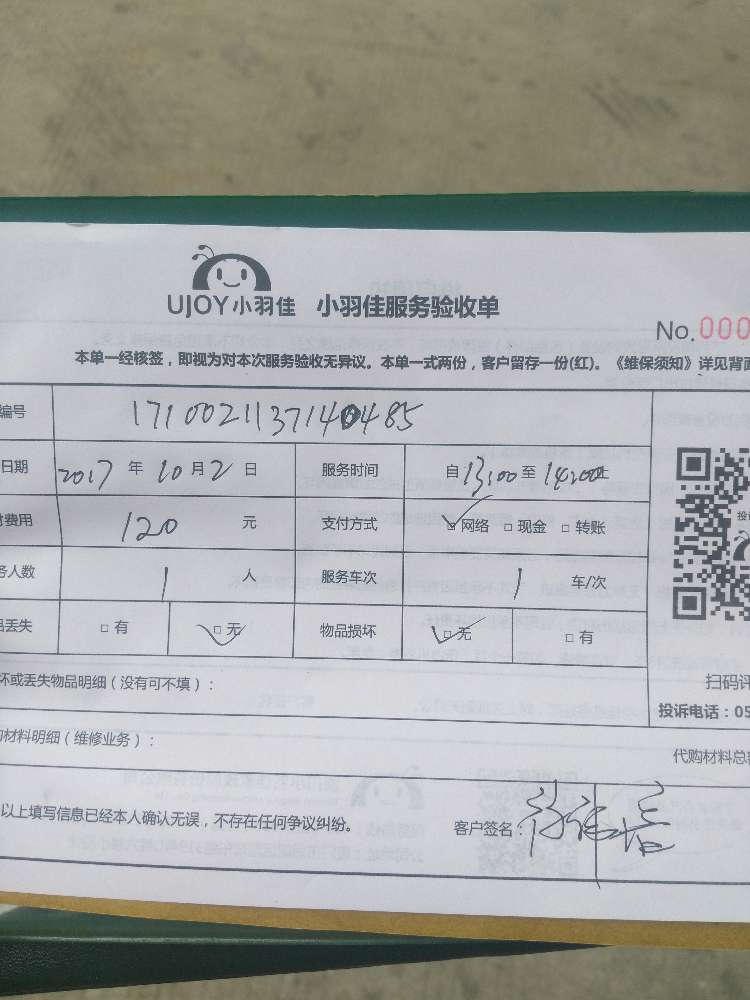 UJOY小羽佳 小羽佳服务验收单
No.000
本单一经核签，即视为对本次服务验收无异议。本单一式两份，客户留存一份(红)。《维保须知》详见背面
编号 1710021137140485
日期 2017 年 10 月 2 日 服务时间 自 13:00 至 14:00 止
费用 120 元 支付方式 网络 现金 转账
务人数 1 人 服务车次 1 车/次
品丢失 有 无 物品损坏 无 有
坏或丢失物品明细（没有可不填）：
扫码评
投诉电话：05
购材料明细（维修业务）：
代购材料总额
以上填写信息已经本人确认无误，不存在任何争议纠纷。 客户签名：